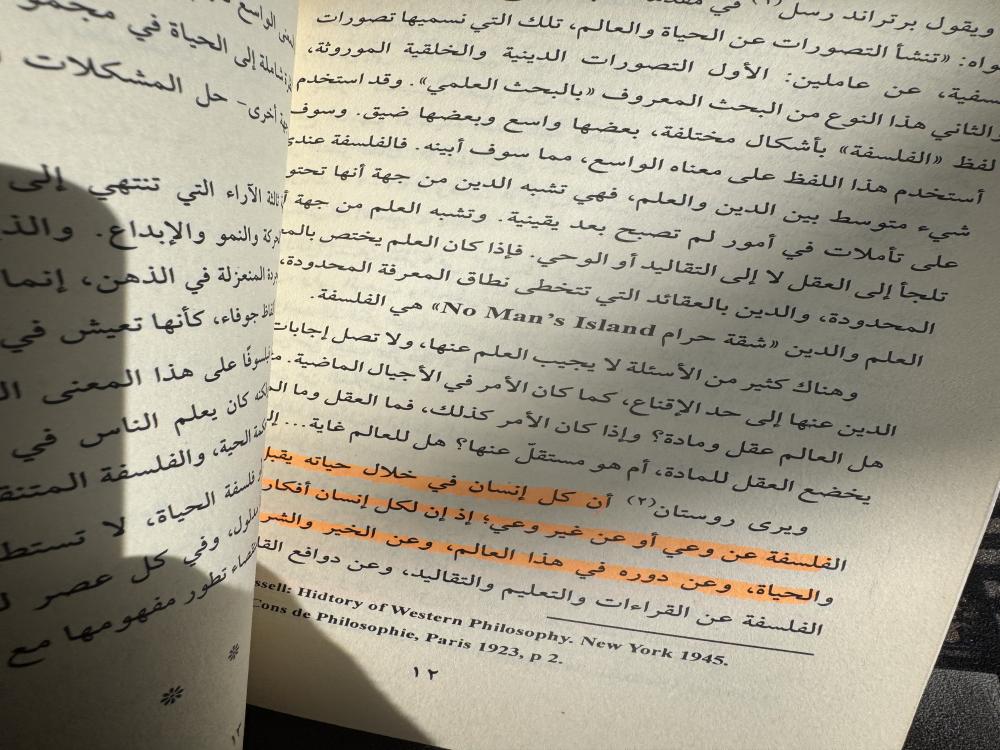 ويقول برتراند رسل(١) في
«تنشأ التصورات عن الحياة والعالم، تلك التي نسميها تصورات
عن عاملين: الأول التصورات الدينية والخلقية الموروثة،
والثاني هذا النوع من البحث المعروف «بالبحث العلمي». وقد استخدم
لفظ «الفلسفة» بأشكال مختلفة، بعضها واسع وبعضها ضيق. وسوف
أستخدم هذا اللفظ على معناه الواسع، مما سوف أبينه. فالفلسفة
شيء متوسط بين الدين والعلم، فهي تشبه الدين من جهة أنها
على تأملات في أمور لم تصبح بعد يقينية. وتشبه العلم من جهة
تلجأ إلى العقل لا إلى التقاليد أو الوحي. فإذا كان العلم يختص
المحدودة، والدين بالعقائد التي تتخطى نطاق المعرفة المحدودة،
العلم والدين «شقة حرام No Man's Island» هي الفلسفة.
وهناك كثير من الأسئلة لا يجيب العلم عنها، ولا تصل إجابات
الدين عنها إلى حد الإقناع، كما كان الأمر في الأجيال الماضية.
هل العالم عقل ومادة؟ وإذا كان الأمر كذلك، فما العقل وما
يخضع العقل للمادة، أم هو مستقلّ عنها؟ هل للعالم غاية...
ويرى روستان(٢) أن كل إنسان في خلال حياته
الفلسفة عن وعي أو عن غير وعي؛ إذ إن لكل إنسان
والحياة، وعن دوره في هذا العالم، وعن الخير والشر
الفلسفة عن القراءات والتعليم والتقاليد، وعن دوافع
ssell: Hidtory of Western Philosophy. New York 1945.
Cons de Philosophie, Paris 1923, p 2.
١٢
شاملة إلى الحياة في
أخرى- حل المشكلات
الآراء التي تنتهي إلى
والنمو والإبداع.
المنعزلة في الذهن، إنما
جوفاء، كأنها تعيش في
على هذا المعنى
كان يعلم الناس في
الحية، والفلسفة
فلسفة الحياة، لا
وفي كل عصر
تطور مفهومها مع